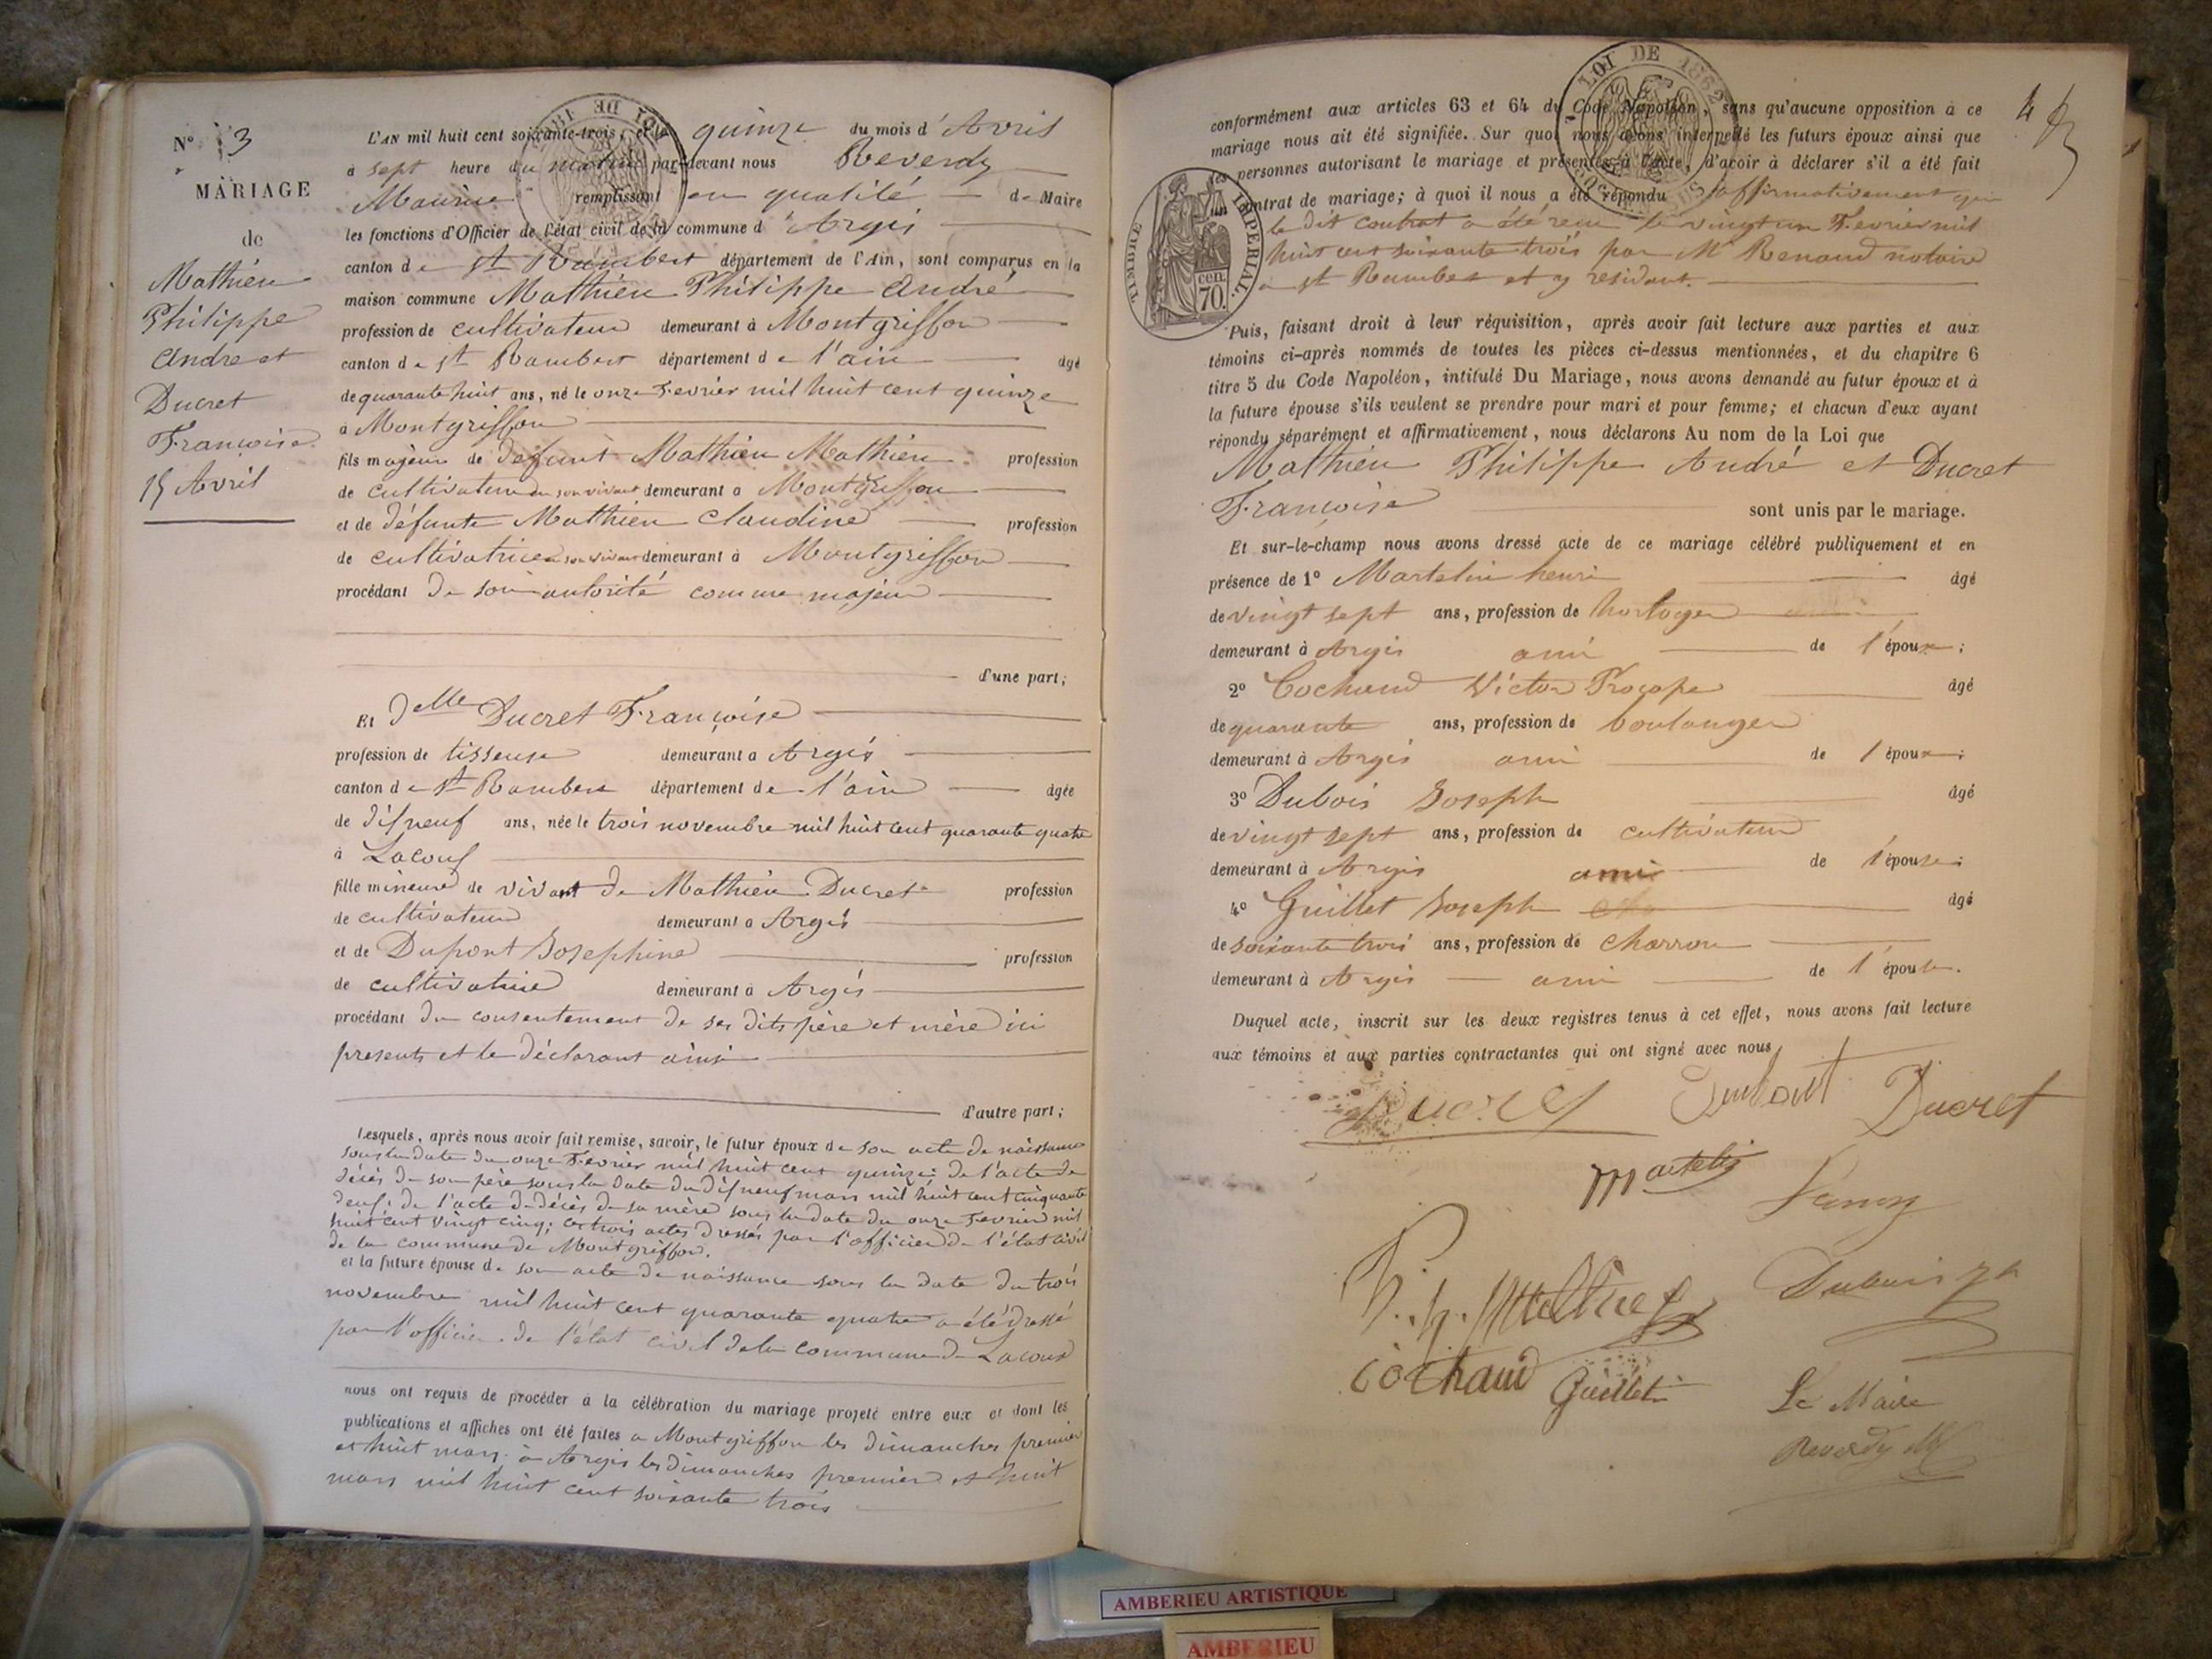 N° 3
MARIAGE
de
Mathieu
Philippe
André et
Ducret
Françoise
15 Avril
L'AN mil huit cent soixante-trois, et le quinze du mois d'Avril
à sept heure du matin par-devant nous Reverdy
Maurice remplissant en qualité de Maire
les fonctions d'Officier de l'état civil de la commune d'Argis
canton de St Rambert département de l'Ain, sont comparus en la
maison commune Mathieu Philippe André
profession de cultivateur demeurant à Montgriffon
canton de St Rambert département de l'ain âgé
de quarante huit ans, né le onze Fevrier mil huit cent quinze
à Montgriffon
fils majeur de défunt Mathieu Mathieu profession
de cultivateur en son vivant demeurant a Montgriffon
et de défunte Mathieu Claudine profession
de cultivatrice en son vivant demeurant à Montgriffon
procédant de son autorité comme majeur
d'une part;
Et Delle Ducret Françoise
profession de tisseuse demeurant a Argis
canton de St Rambert département de l'ain âgée
de disneuf ans, née le trois novembre mil huit cent quarante quatre
à Lacoux
fille mineure de vivant de Mathieu Ducret profession
de cultivateur demeurant a Argis
et de Dupont Josephine profession
de cultivatrice demeurant à Argis
procédant du consentement de ses dits père et mère ici
presents et le déclarant ainsi
d'autre part;
Lesquels, après nous avoir fait remise, savoir, le futur époux de son acte de naissance
sous la date du onze Fevrier mil huit cent quinze; de l'acte de
décès de son père sous la date du disneuf mars mil huit cent cinquante
neuf; de l'acte de décès de sa mère sous la date du onze Fevrier mil
huit cent vingt cinq; les trois actes dressés par l'officier de l'état civil
de la commune de Montgriffon.
et la future épouse de son acte de naissance sous la date du trois
novembre mil huit cent quarante quatre a été dressé
par l'officier de l'état civil de la commune de Lacoux
nous ont requis de procéder à la célébration du mariage projeté entre eux et dont les
publications et affiches ont été faites a Montgriffon les dimanches premier
et huit mars; à Argis les dimanches premier et huit
mars mil huit cent soixante trois
LOI DE 1862
conformément aux articles 63 et 64 du Code Napoléon, sans qu'aucune opposition à ce
mariage nous ait été signifiée. Sur quoi nous avons interpellé les futurs époux ainsi que
les personnes autorisant le mariage et présentes à l'acte, d'avoir à déclarer s'il a été fait
un contrat de mariage; à quoi il nous a été répondu affirmativement que
le dit contrat a été reçu le vingt un Fevrier mil
huit cent soixante trois par Me Renaud notaire
a st Rambert et y residant.
TIMBRE IMPERIAL
70 cen.
Puis, faisant droit à leur réquisition, après avoir fait lecture aux parties et aux
témoins ci-après nommés de toutes les pièces ci-dessus mentionnées, et du chapitre 6
titre 5 du Code Napoléon, intitulé Du Mariage, nous avons demandé au futur époux et à
la future épouse s'ils veulent se prendre pour mari et pour femme; et chacun d'eux ayant
répondu séparément et affirmativement, nous déclarons Au nom de la Loi que
Mathieu Philippe André et Ducret
Françoise sont unis par le mariage.
Et sur-le-champ nous avons dressé acte de ce mariage célébré publiquement et en
présence de 1° Martelin henri âgé
de vingt sept ans, profession de horloger
demeurant à Argis ami de l'époux;
2° Cochaud Victor Procope âgé
de quarante ans, profession de boulanger
demeurant à Argis ami de l'époux;
3° Dubois Joseph âgé
de vingt sept ans, profession de cultivateur
demeurant à Argis ami de l'épouse;
4° Guillet Joseph âgé
de soixante trois ans, profession de charron
demeurant à Argis ami de l'épouse.
Duquel acte, inscrit sur les deux registres tenus à cet effet, nous avons fait lecture
aux témoins et aux parties contractantes qui ont signé avec nous
Ducret Dupont Ducret
Martelin
Dubois
Cochaud Guillet
Le Maire
Reverdy M
AMBERIEU ARTISTIQUE
AMBERIEU